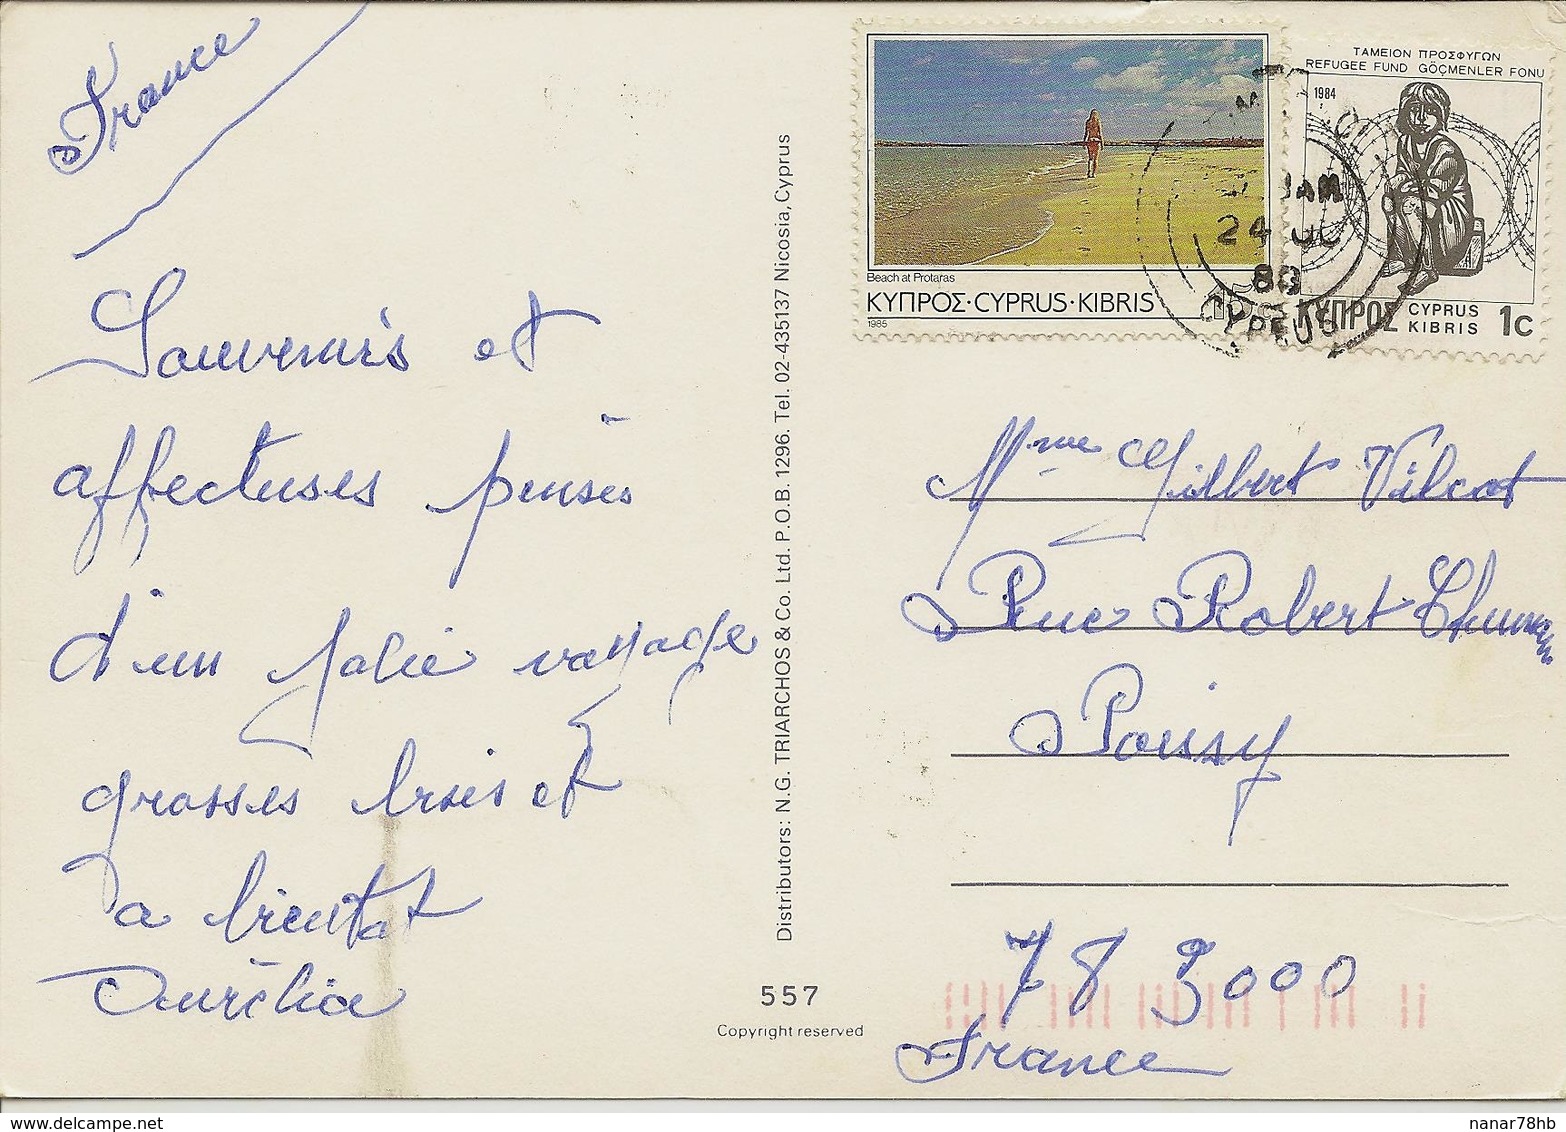 France
Souvenirs et
affectuses pensés
d'un jolie voyage
grosses bises et
a bientot
Aurélia
Distributors: N.G. TRIARCHOS & Co. Ltd. P.O.B. 1296. Tel. 02-435137 Nicosia, Cyprus
557
Copyright reserved
Beach at Protaras
ΚΥΠΡΟΣ·CYPRUS·KIBRIS
1985
ΤΑΜΕΙΟΝ ΠΡΟΣΦΥΓΩΝ
REFUGEE FUND GÖÇMENLER FONU
1984
ΚΥΠΡΟΣ CYPRUS
KIBRIS 1c
AM
24
CYPRUS
Mme Gilbert Vilcot
Rue Robert
Poissy
78 3000
France
nanar78hb
www.delcampe.net